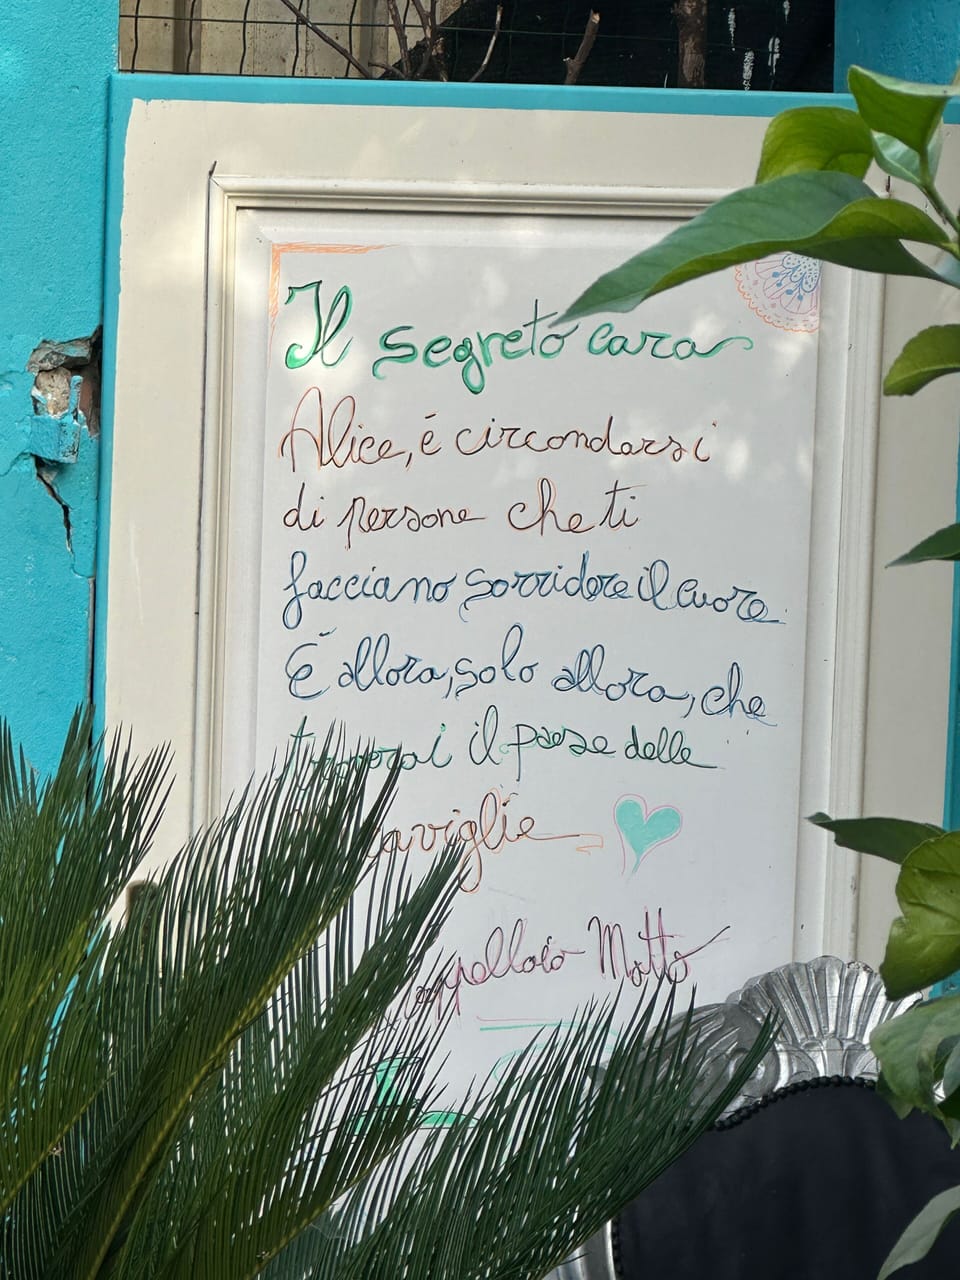 Il segreto cara
Alice, é circondarsi
di persone che ti
facciano sorridere il cuore.
É allora, solo allora, che
troverai il paese delle
Cappellaio Matto